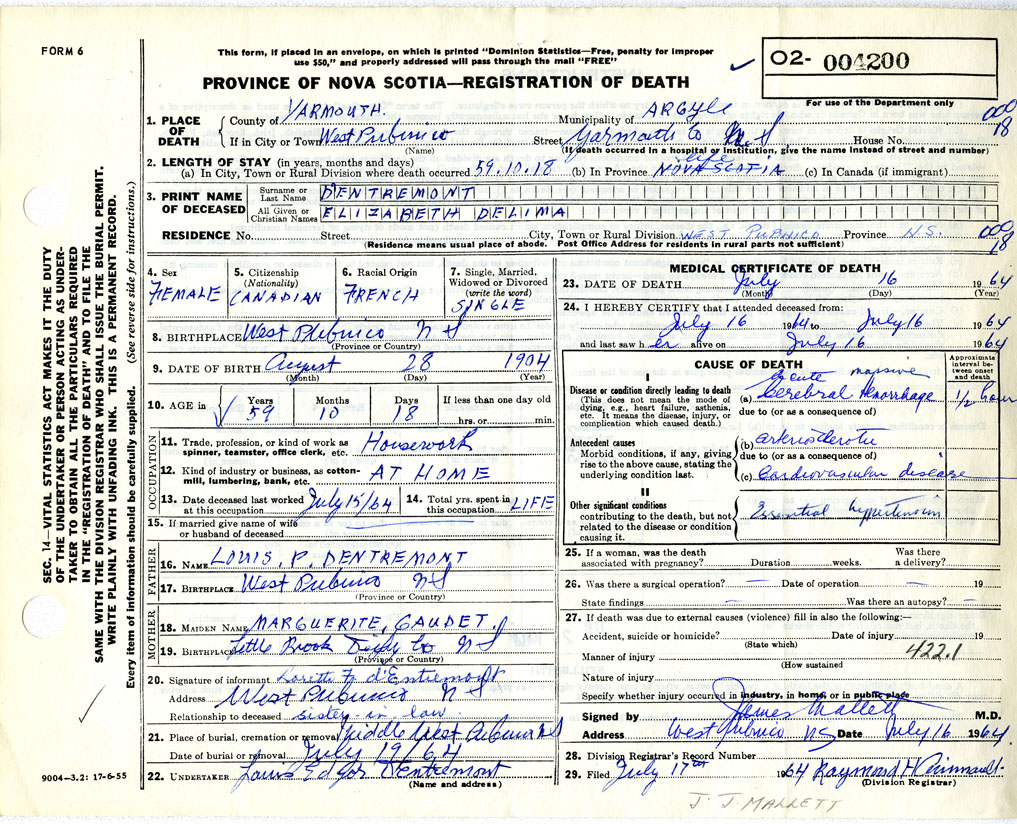 FORM 6
This form, if placed in an envelope, on which is printed "Dominion Statistics—Free, penalty for improper
use $50," and properly addressed will pass through the mail "FREE"
PROVINCE OF NOVA SCOTIA—REGISTRATION OF DEATH
✓ 02- 004200
For use of the Department only
1. PLACE OF DEATH { County of YARMOUTH. Municipality of ARGYLE 000 18
If in City or Town West Pubnico Street Yarmouth Co N.S House No.
(Name) (If death occurred in a hospital or institution, give the name instead of street and number)
2. LENGTH OF STAY (in years, months and days) life
(a) In City, Town or Rural Division where death occurred 59.10.18 (b) In Province NOVA SCOTIA (c) In Canada (if immigrant)
3. PRINT NAME OF DECEASED { Surname or Last Name D'ENTREMONT
All Given or Christian Names ELIZABETH DELIMA
RESIDENCE No. Street City, Town or Rural Division WEST PUBNICO Province N.S. 000 18
(Residence means usual place of abode. Post Office Address for residents in rural parts not sufficient)
4. Sex FEMALE
5. Citizenship (Nationality) CANADIAN
6. Racial Origin FRENCH
7. Single, Married, Widowed or Divorced (write the word) SINGLE
8. BIRTHPLACE West Pubnico N S
(Province or Country)
9. DATE OF BIRTH August 28 1904
(Month) (Day) (Year)
10. AGE in { Years Months Days If less than one day old
✓ 59 10 18 hrs. or min.
OCCUPATION
11. Trade, profession, or kind of work as spinner, teamster, office clerk, etc. Housework
12. Kind of industry or business, as cotton-mill, lumbering, bank, etc. AT HOME
13. Date deceased last worked at this occupation July 15/64 14. Total yrs. spent in this occupation LIFE
15. If married give name of wife or husband of deceased
FATHER
16. NAME LOUIS. P. DENTREMONT
17. BIRTHPLACE West Pubnico N S
(Province or Country)
MOTHER
18. MAIDEN NAME MARGUERITE, GAUDET.
19. BIRTHPLACE Little Brook Digby Co N S
(Province or Country)
20. Signature of informant Lorette F d'Entremont
Address West Pubnico N S
Relationship to deceased sister-in law
21. Place of burial, cremation or removal Middle West Pubnico NS
Date of burial or removal July 19 / 64
22. UNDERTAKER Louis Edgor Dentremont
(Name and address)
MEDICAL CERTIFICATE OF DEATH
23. DATE OF DEATH July 16 1964
(Month) (Day) (Year)
24. I HEREBY CERTIFY that I attended deceased from:
July 16 1964 to July 16 1964
and last saw her alive on July 16 1964
CAUSE OF DEATH
Approximate interval between onset and death
I
Disease or condition directly leading to death
(This does not mean the mode of dying, e.g., heart failure, asthenia, etc. It means the disease, injury, or complication which caused death.)
Acute massive
(a) Cerebral Hemorrhage 1/2 hour
due to (or as a consequence of)
Antecedent causes
Morbid conditions, if any, giving rise to the above cause, stating the underlying condition last.
(b) arteriosclerotic
due to (or as a consequence of)
(c) Cardiovascular disease
II
Other significant conditions
contributing to the death, but not related to the disease or condition causing it.
Essential hypertension
25. If a woman, was the death associated with pregnancy? Duration weeks. Was there a delivery?
26. Was there a surgical operation? — Date of operation — 19
State findings — Was there an autopsy? —
27. If death was due to external causes (violence) fill in also the following:—
Accident, suicide or homicide? Date of injury 19
(State which)
Manner of injury 422.1
(How sustained
Nature of injury
Specify whether injury occurred in industry, in home, or in public place
Signed by James Mallett M.D.
Address West Pubnico NS Date July 16 1964.
28. Division Registrar's Record Number
29. Filed July 17th 1964 Raymond H
(Division Registrar)
J. J. MALLETT
SEC. 14—VITAL STATISTICS ACT MAKES IT THE DUTY
OF THE UNDERTAKER OR PERSON ACTING AS UNDER-
TAKER TO OBTAIN ALL THE PARTICULARS REQUIRED
IN THE "REGISTRATION OF DEATH" AND TO FILE THE
SAME WITH THE DIVISION REGISTRAR WHO SHALL ISSUE THE BURIAL PERMIT.
WRITE PLAINLY WITH UNFADING INK. THIS IS A PERMANENT RECORD.
Every item of information should be carefully supplied. (See reverse side for instructions.)
✓
9004-3.2: 17-6-55